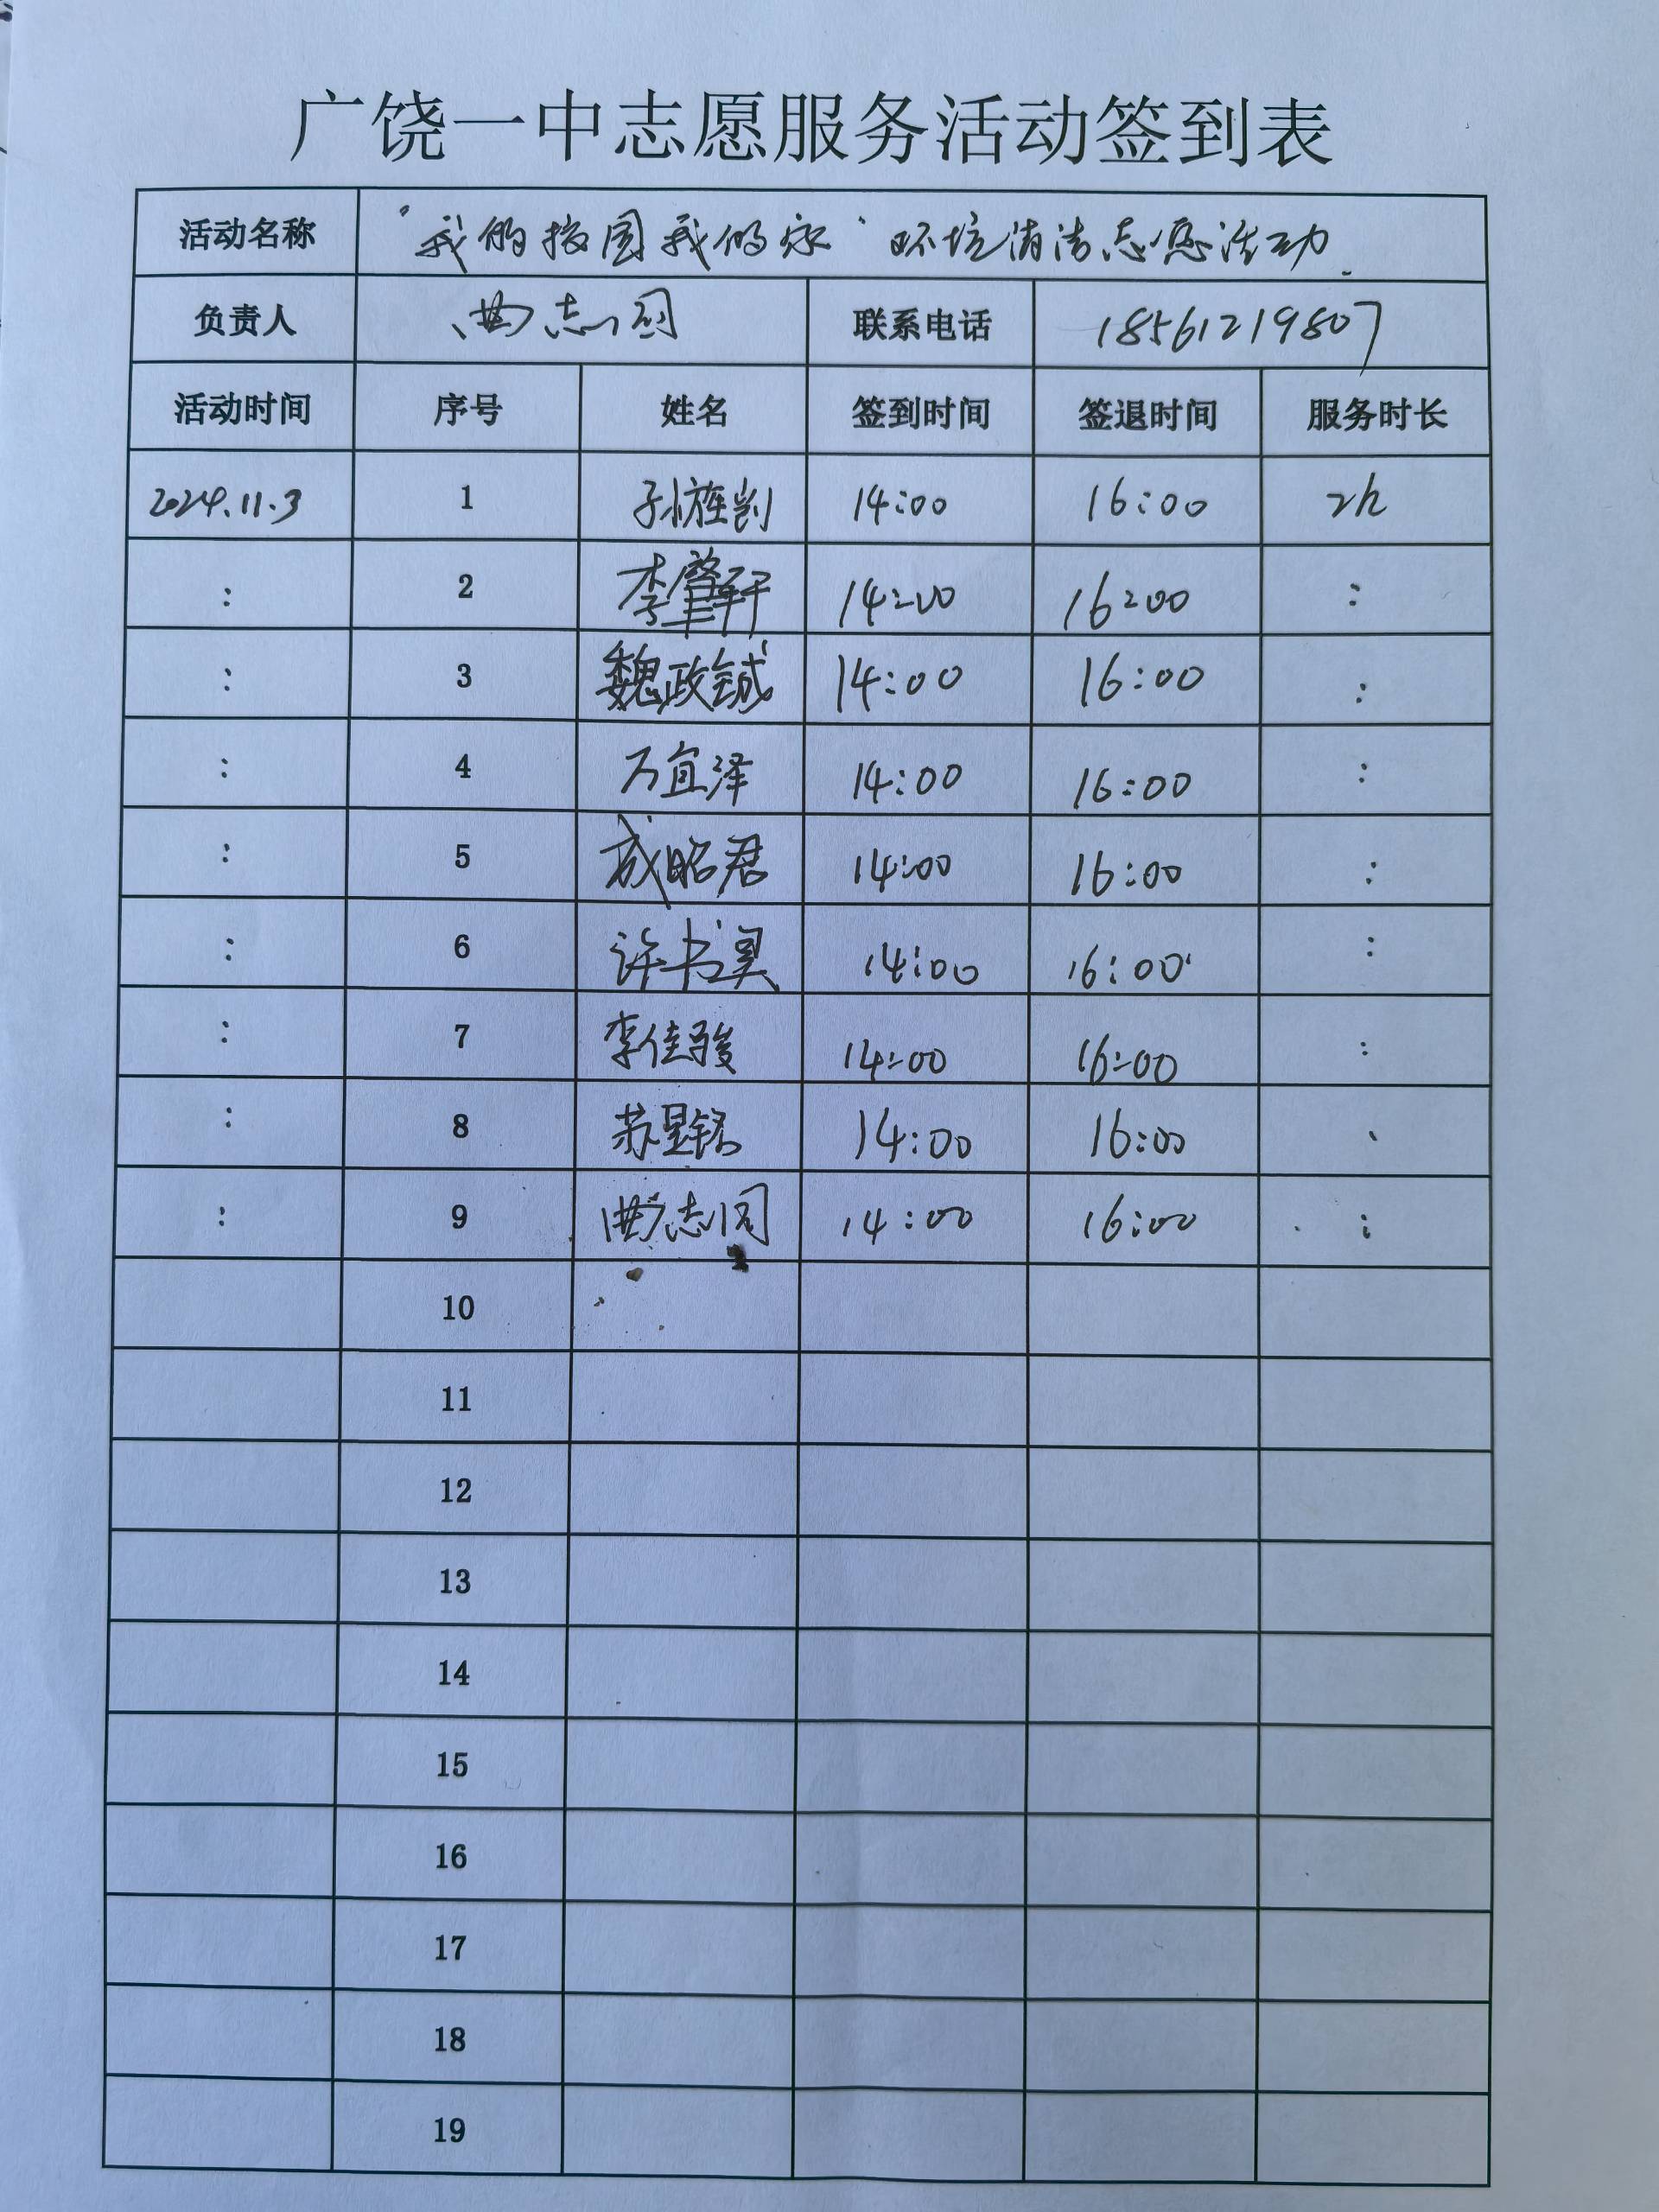 广饶一中志愿服务活动签到表
活动名称 “我的校园我的家”环境清洁志愿活动.
负责人 曲志同 联系电话 18561219807
活动时间 序号 姓名 签到时间 签退时间 服务时长
2024.11.3 1 孙 14:00 16:00 2h
: 2 李肇轩 14:00 16:00 :
: 3 魏政铖 14:00 16:00 :
: 4 万宜泽 14:00 16:00 :
: 5 成昭君 14:00 16:00 :
: 6 许书昊 14:00 16:00 :
: 7 李佳骏 14:00 16:00 :
: 8 苏昱铭 14:00 16:00 、
: 9 曲志同 14:00 16:00 :
10
11
12
13
14
15
16
17
18
19